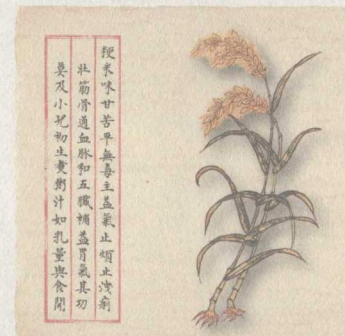 粳米味甘苦平無毒主益氣止煩止洩痢
壯筋骨通血脉和五臟補益胃氣其功
莫及小兒初生煑粥汁如乳量與食開